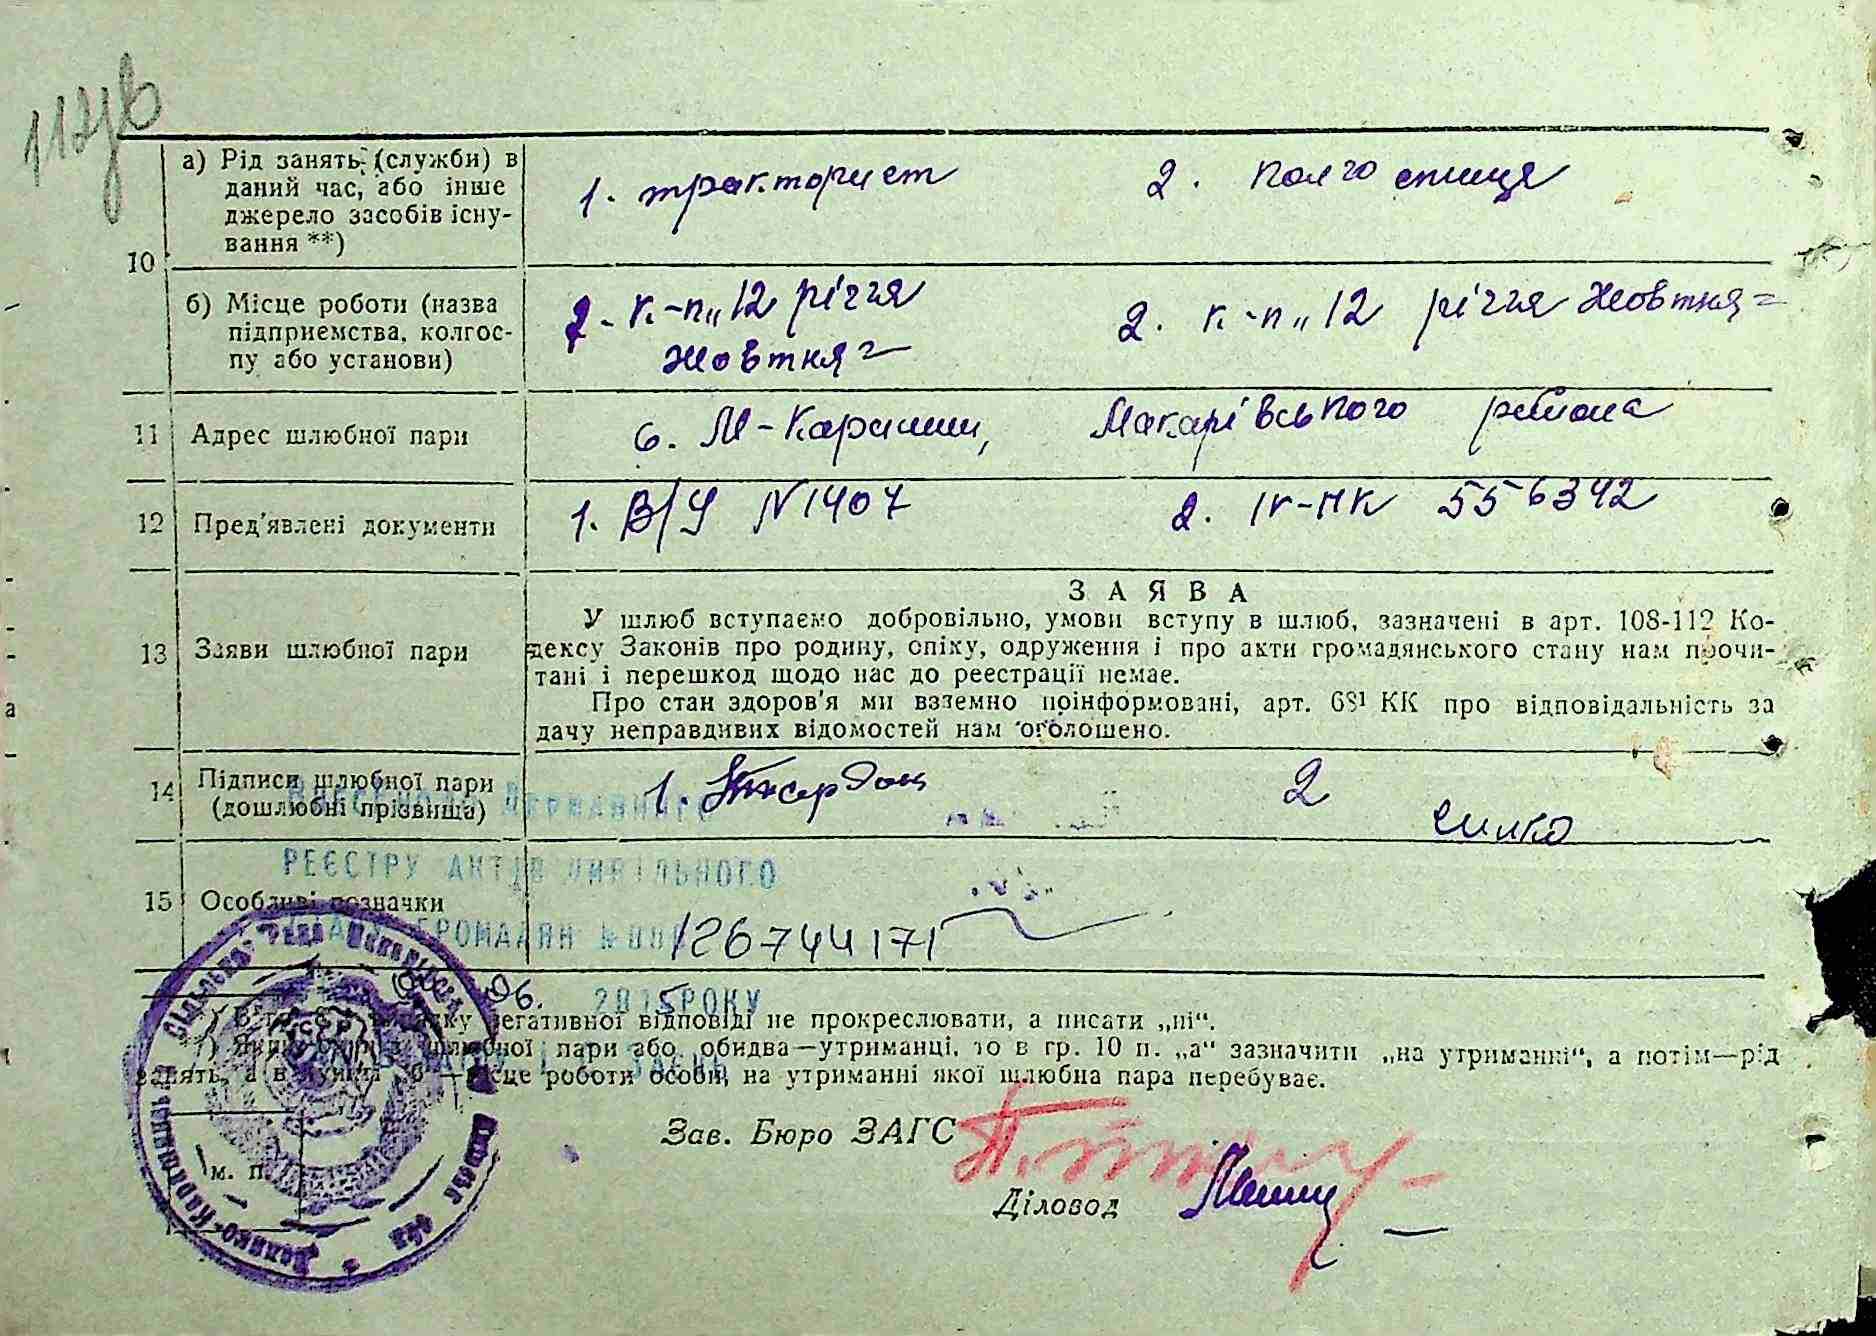 112зв
а) Рід занять (служби) в
даний час, або інше
джерело засобів існу-
вання **)
1. тракторист 2. колгоспниця
10
б) Місце роботи (назва
підприємства, колгос-
пу або установи)
2. к-п „12 річчя
Жовтня"
2. к-п „12 річчя Жовтня"
11 Адрес шлюбної пари
с. М-Карашин, Макарівського району
12 Пред'явлені документи
1. В/У №1407 2. IК-НК 556342
13 Заяви шлюбної пари
ЗАЯВА
У шлюб вступаємо добровільно, умови вступу в шлюб, зазначені в арт. 108-112 Ко-
дексу Законів про родину, опіку, одруження і про акти громадянського стану нам прочи-
тані і перешкод щодо нас до реєстрації немає.
Про стан здоров'я ми взаємно поінформовані, арт. 68¹ КК про відповідальність за
дачу неправдивих відомостей нам оголошено.
14 Підписи шлюбної пари
(дошлюбні прізвища)
1. 2
ДЕРЖАВНОГО
РЕЄСТРУ АКТІВ ЦИВІЛЬНОГО
15 Особливі позначки
ГРОМАДЯН №
126744171
06. 2015 РОКУ
негативної відповіді не прокреслювати, а писати „ні“.
шлюбної пари або обидва—утриманці, то в гр. 10 п. „а“ зазначити „на утриманні“, а потім—рід
занять, а в пункті „б“—місце роботи особи, на утриманні якої шлюбна пара перебуває.
Зав. Бюро ЗАГС
Діловод
м. п.